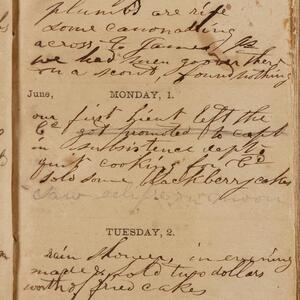 plumbs are ripe
some canonading
across to James
we had men go over there
on a scout & found nothing
June, MONDAY, 1.
our first Lieut left the
Co got promoted to capt
in subsistence dept
quit cooking for Co
sold some blackberry cakes
TUESDAY, 2.
rain showers in evening
made & sold two dollars
worth of fried cakes